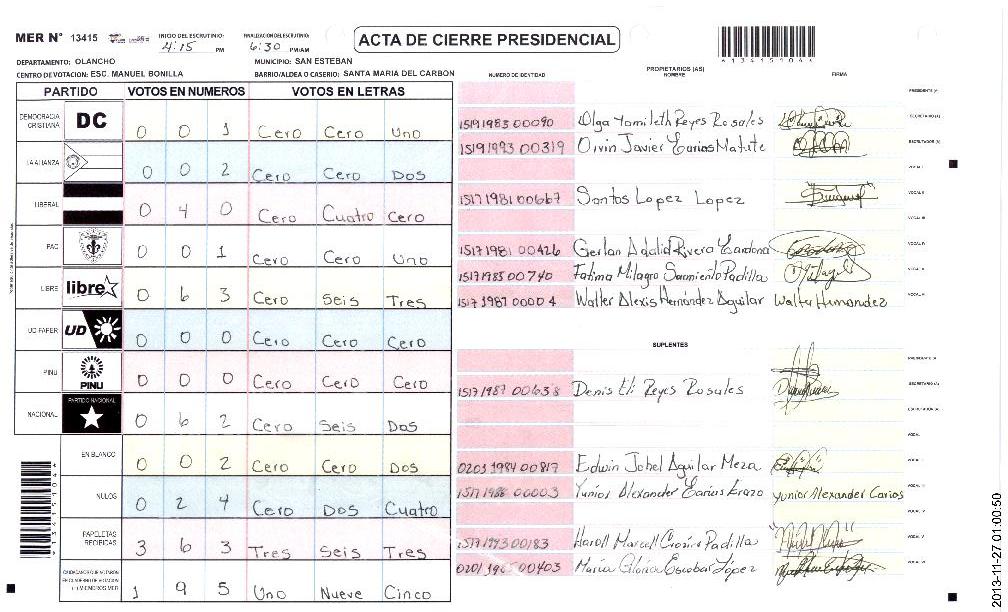 MER N° 13415 INICIO DEL ESCRUTINIO: 4:15 PM FINALIZACION DEL ESCRUTINIO: 6:30 PM/AM
ACTA DE CIERRE PRESIDENCIAL
DEPARTAMENTO: OLANCHO MUNICIPIO: SAN ESTEBAN
CENTRO DE VOTACION: ESC. MANUEL BONILLA BARRIO/ALDEA O CASERIO: SANTA MARIA DEL CARBON
PARTIDO VOTOS EN NUMEROS VOTOS EN LETRAS
DEMOCRACIA CRISTIANA DC 0 0 1 Cero Cero Uno
LA ALIANZA 0 0 2 Cero Cero Dos
LIBERAL 0 4 0 Cero Cuatro Cero
PAC 0 0 1 Cero Cero Uno
LIBRE libre 0 6 3 Cero Seis Tres
UD FAPER UD 0 0 0 Cero Cero Cero
PINU PINU 0 0 0 Cero Cero Cero
NACIONAL PARTIDO NACIONAL 0 6 2 Cero Seis Dos
EN BLANCO 0 0 2 Cero Cero Dos
NULOS 0 2 4 Cero Dos Cuatro
PAPELETAS RECIBIDAS 3 6 3 Tres Seis Tres
1 9 5 Uno Nueve Cinco
NUMERO DE IDENTIDAD PROPIETARIOS (AS) NOMBRE FIRMA
PRESIDENTE (A)
1519 1983 00090 Olga Yamileth Reyes Rosales SECRETARIO (A)
1519 1993 00319 Orvin Javier Carias Matute ESCRUTADOR (A)
VOCAL I
1517 1981 00667 Santos Lopez Lopez VOCAL II
VOCAL III
1517 1981 00426 Gerlan Adalid Rivera Cardona VOCAL IV
1517 1985 00740 Fatima Milagro Sarmiento Padilla VOCAL V
1517 1987 0000 4 Walter Alexis Hernandez Aguilar Walter Hernandez VOCAL VI
SUPLENTES
PRESIDENTE (A)
1517 1987 00638 Denis Eli Reyes Rosales SECRETARIO (A)
ESCRUTADOR (A)
VOCAL I
0203 1984 00817 Edwin Jobel Aguilar Meza VOCAL II
1517 1988 00003 Yunior Alexander Carias Yunior Alexander Carias VOCAL III
VOCAL IV
1517 1993 00183 Padilla VOCAL V
0201 00403 Maria Gloria Escobar López VOCAL VI
2013-11-27 01:00:50